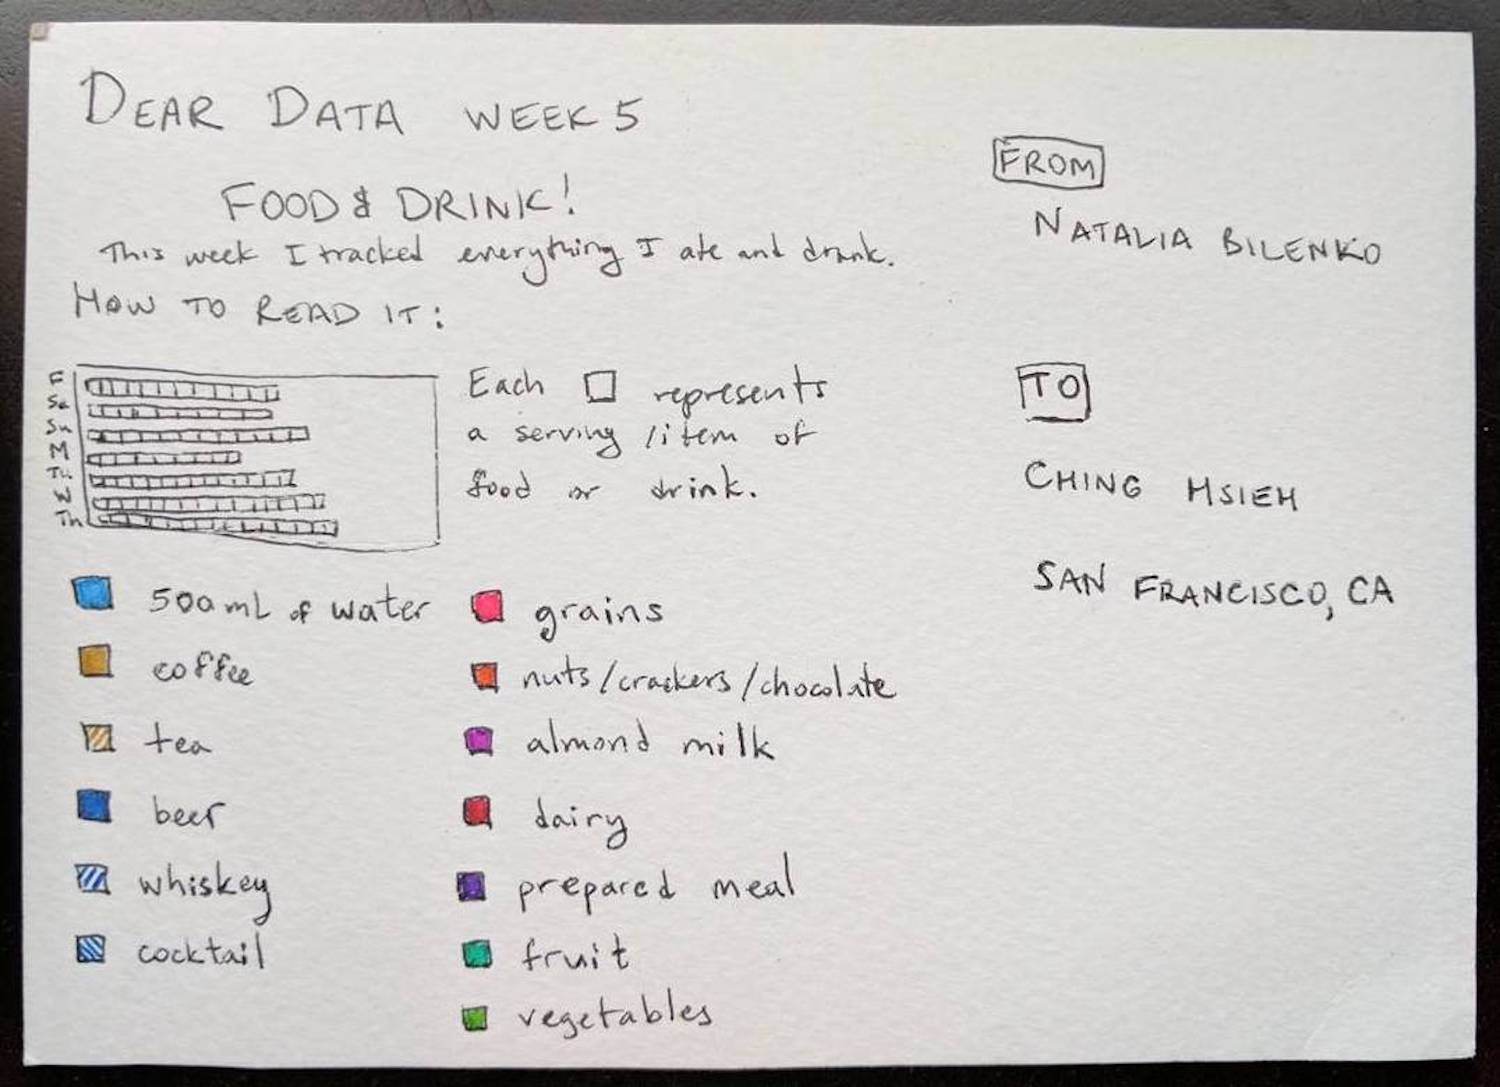 DEAR DATA WEEK 5
FOOD & DRINK!
This week I tracked everything I ate and drank.
HOW TO READ IT:
F
Sa
Su
M
Tu
W
Th
Each □ represents
a serving/item of
food or drink.
500mL of water
coffee
tea
beer
whiskey
cocktail
grains
nuts/crackers/chocolate
almond milk
dairy
prepared meal
fruit
vegetables
FROM
NATALIA BILENKO
TO
CHING HSIEH
SAN FRANCISCO, CA